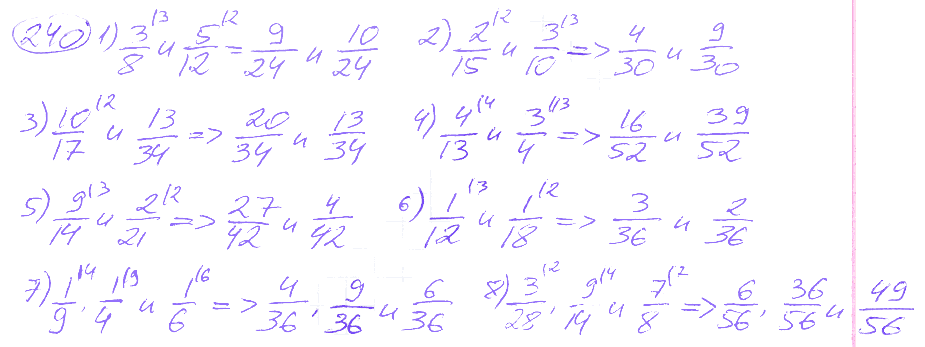 240 1) 3/8 \3 и 5/12 \2 = 9/24 и 10/24 2) 2/15 \2 и 3/10 \3 => 4/30 и 9/30
3) 10/17 \2 и 13/34 => 20/34 и 13/34 4) 4/13 \4 и 3/4 \13 => 16/52 и 39/52
5) 9/14 \3 и 2/21 \2 => 27/42 и 4/42 6) 1/12 \3 и 1/18 \2 => 3/36 и 2/36
7) 1/9 \4, 1/4 \9 и 1/6 \6 => 4/36, 9/36 и 6/36 8) 3/28 \2, 9/14 \4 и 7/8 \2 => 6/56, 36/56 и 49/56